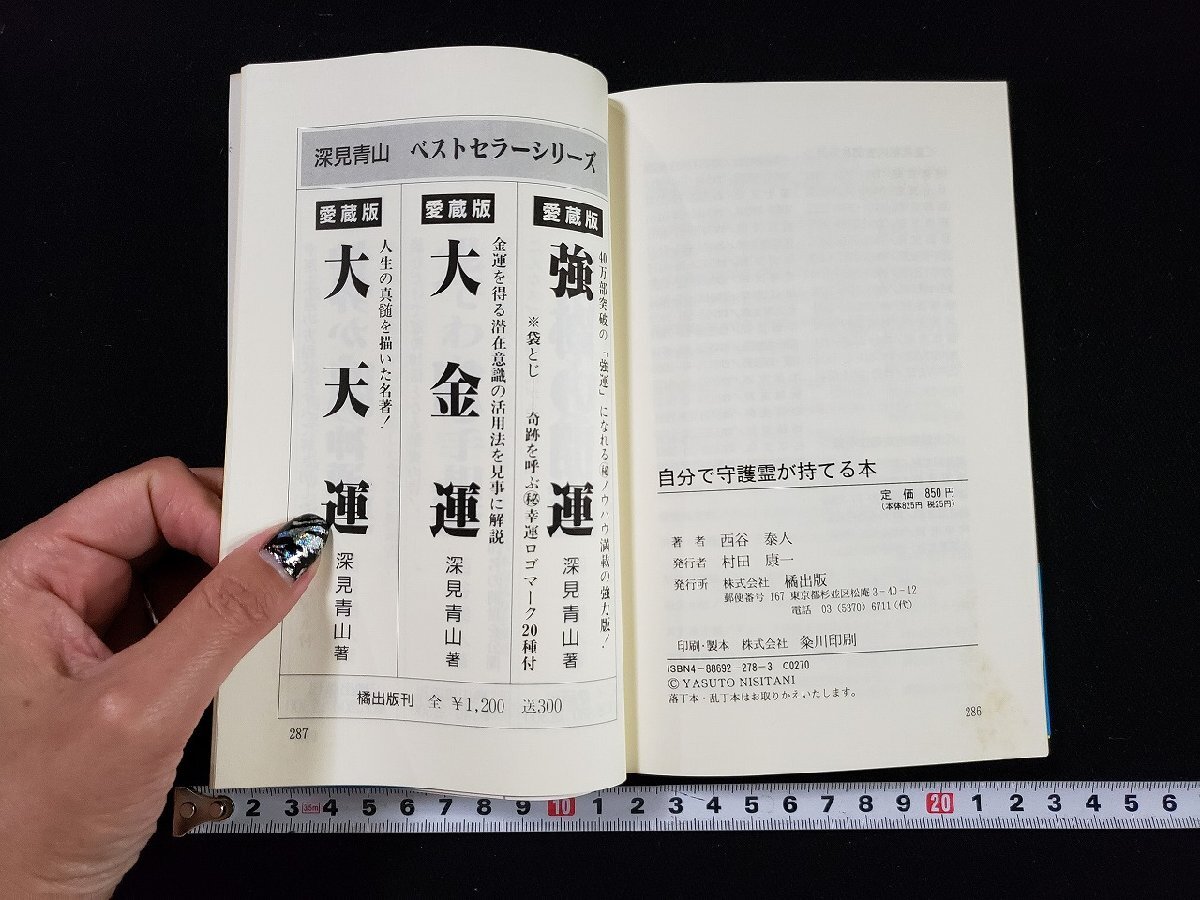 深見青山 ベストセラーシリーズ
愛蔵版
40万部突破の「強運」になれる㊙ノウハウ満載の強力版!
強運
深見青山著
※袋とじ 奇跡を呼ぶ㊙幸運ロゴマーク20種付
愛蔵版
金運を得る潜在意識の活用法を見事に解説
大金運
深見青山著
愛蔵版
人生の真髄を描いた名著!
大天運
深見青山著
橘出版刊 全 ¥1,200 送300
287
自分で守護霊が持てる本
定価 850円
(本体825円 税25円)
著者 西谷 泰人
発行者 村田 康一
発行所 株式会社 橘出版
郵便番号 167 東京都杉並区松庵3-40-12
電話 03 (5370) 6711(代)
印刷・製本 株式会社 粂川印刷
ISBN4-88692-278-3 C0270
©YASUTO NISITANI
落丁本・乱丁本はお取りかえいたします。
286
2 3 35m 4 5 6 7 8 9 10 1 2 3 4 5 6 7 8 9 20 1 2 3 4 5 6